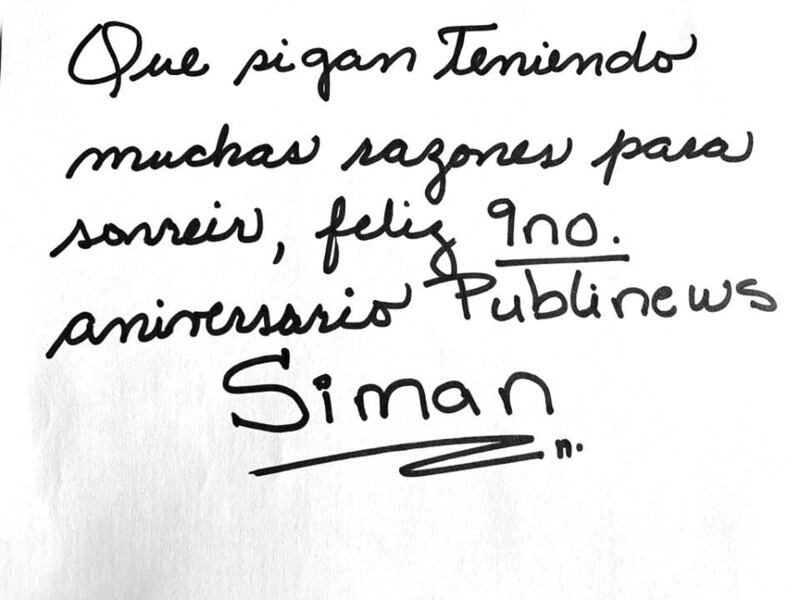 Que sigan Teniendo
muchas razones para
sonreir, feliz 9no.
aniversario Publinews
Siman
n.